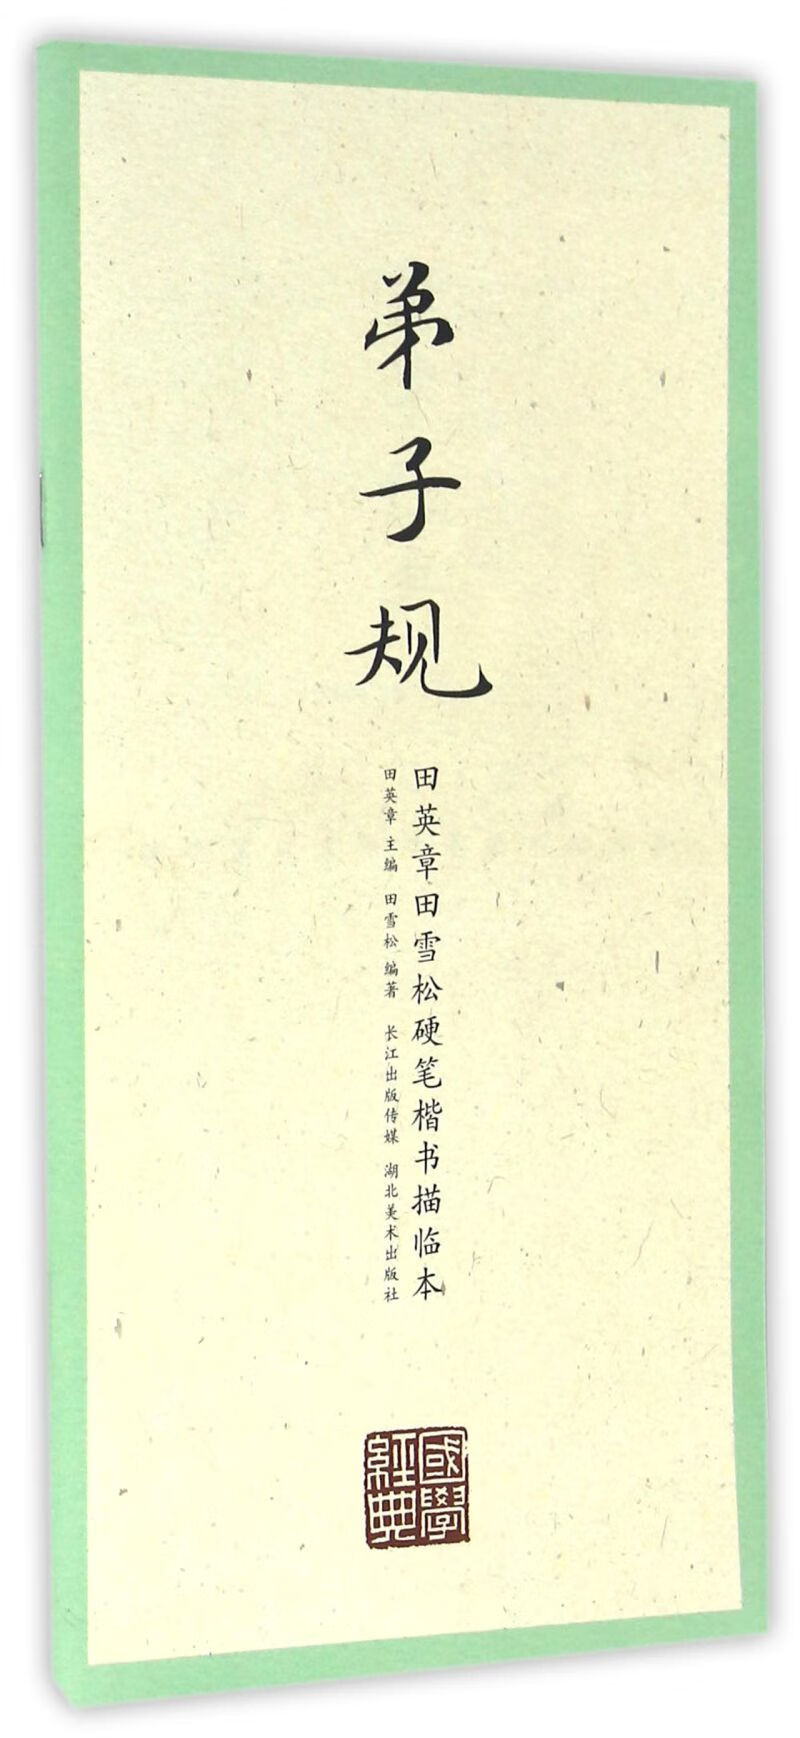 弟子规
田英章田雪松硬笔楷书描临本
田英章 主编 田雪松 编著 长江出版传媒 湖北美术出版社
國學
經典